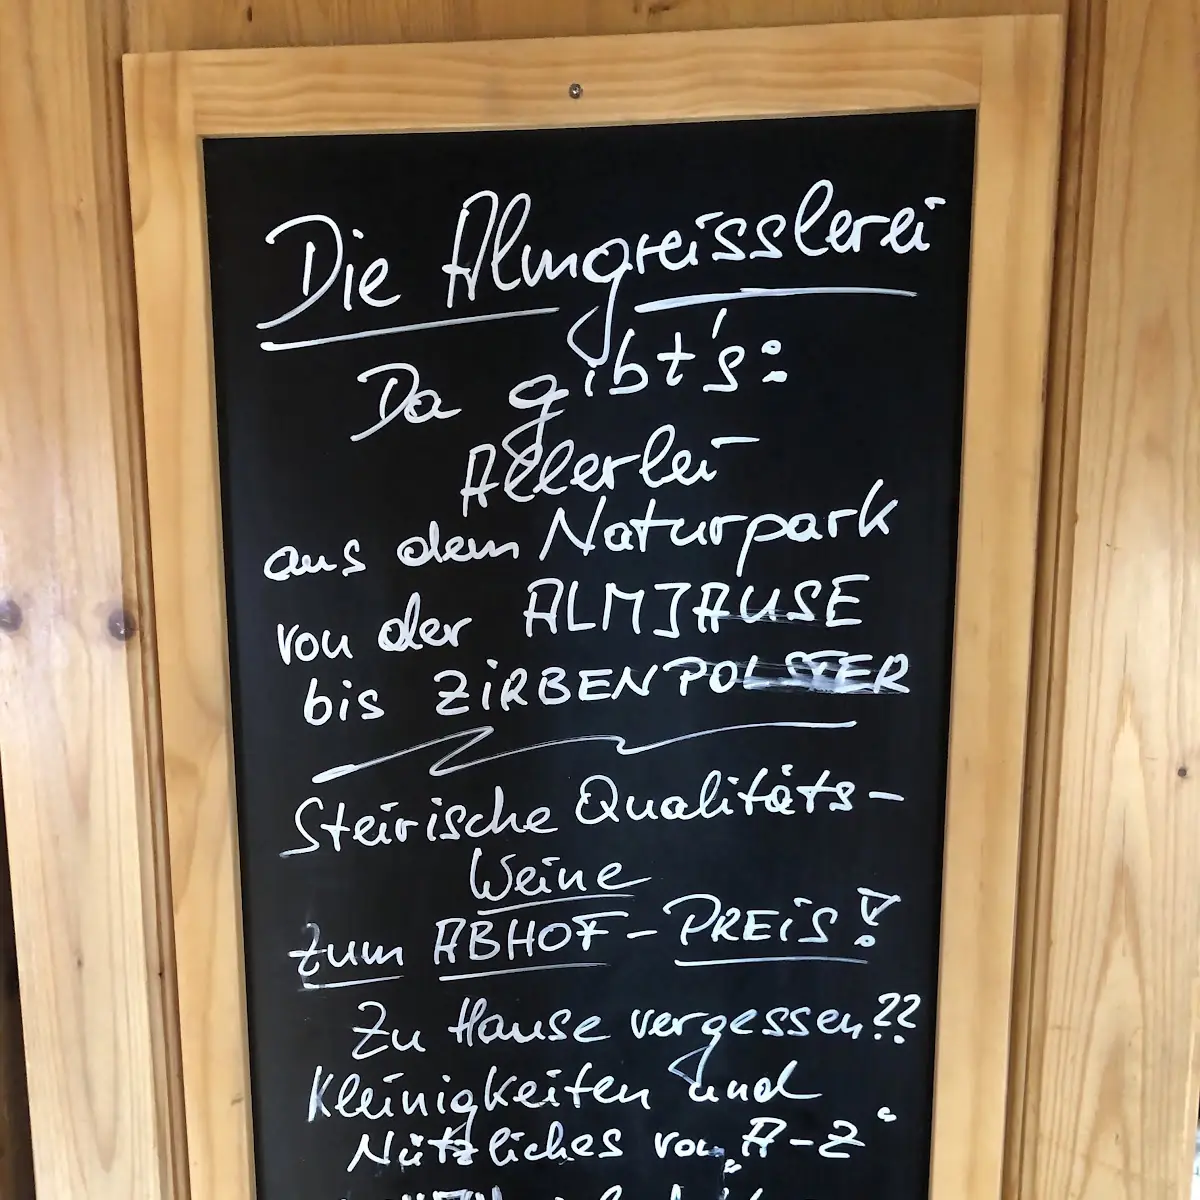 Die Almgreisslerei
Da gibt's:
Allerlei
aus dem Naturpark
von der ALMJAUSE
bis ZIRBENPOLSTER
Steirische Qualitäts-
Weine
zum ABHOF-PREIS!
Zu Hause vergessen??
Kleinigkeiten und
Nützliches von „A-Z“